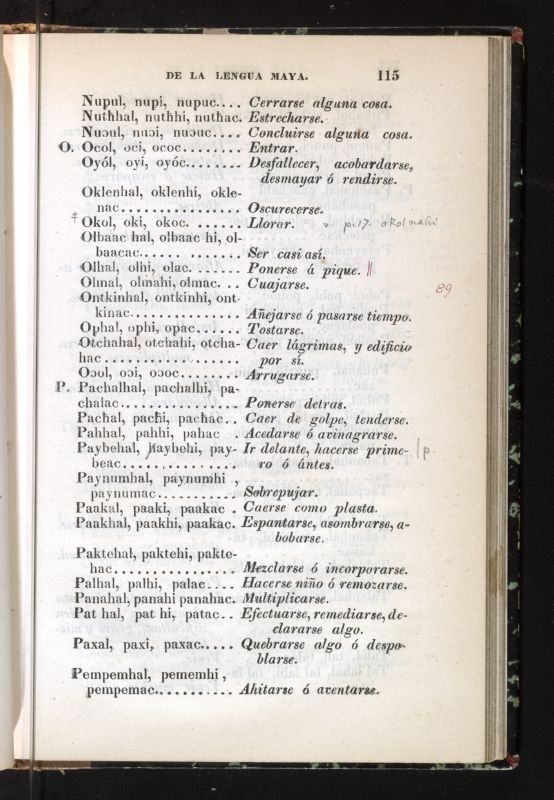 DE LA LENGUA MAYA. 115
Nupul, nupi, nupuc.... Cerrarse alguna cosa.
Nutħhal, nutħhi, nutħac. Estrecharse.
Nuɔul, nuɔi, nuɔuc..... Concluirse alguna cosa.
O. Ocol, oci, ococ........ Entrar.
Oyól, oyi, oyóc........ Desfallecer, acobardarse,
desmayar ó rendirse.
Oklenhal, oklenhi, okle-
nac............... Oscurecerse.
‡ Okol, oki, okoc. ....... Llorar. p. 17. okolnahi
Olbaac hal, olbaac hi, ol-
baacac............. Ser casi así.
Olhal, olhi, olac. ...... Ponerse á pique. ||
Olmal, olmahi, olmac... Cuajarse. 89
Ontkinhal, ontkinhi, ont
kinac.............. Añejarse ó pasarse tiempo.
Ophal, ophi, opac...... Tostarse.
Otchahal, otchahi, otcha- Caer lágrimas, y edificio
hac ................ por sí.
Oɔol, oɔi, oɔoc........ Arrugarse.
P. Pachalhal, pachalhi, pa-
chalac............... Ponerse detras.
Pacħal, pacħi, pacħac.. Caer de golpe, tenderse.
Pahhal, pahhi, pahac .. Acedarse ó avinagrarse.
Paybehal, paybehi, pay- Ir delante, hacerse prime- |p.
beac............... ro ó ántes.
Paynumhal, paynumhi ,
paynumac.......... Sobrepujar.
Paakal, paaki, paakac . Caerse como plasta.
Paakhal, paakhi, paakac. Espantarse, asombrarse, a-
bobarse.
Paktehal, paktehi, pakte-
hac ............... Mezclarse ó incorporarse.
Palhal, palhi, palac.... Hacerse niño ó remozarse.
Panahal, panahi panahac. Multiplicarse.
Pat hal, pat hi, patac.. Efectuarse, remediarse, de-
clararse algo.
Paxal, paxi, paxac..... Quebrarse algo ó despo-
blarse.
Pempemhal, pememhi ,
pempemac.......... Ahitarse ó aventarse.